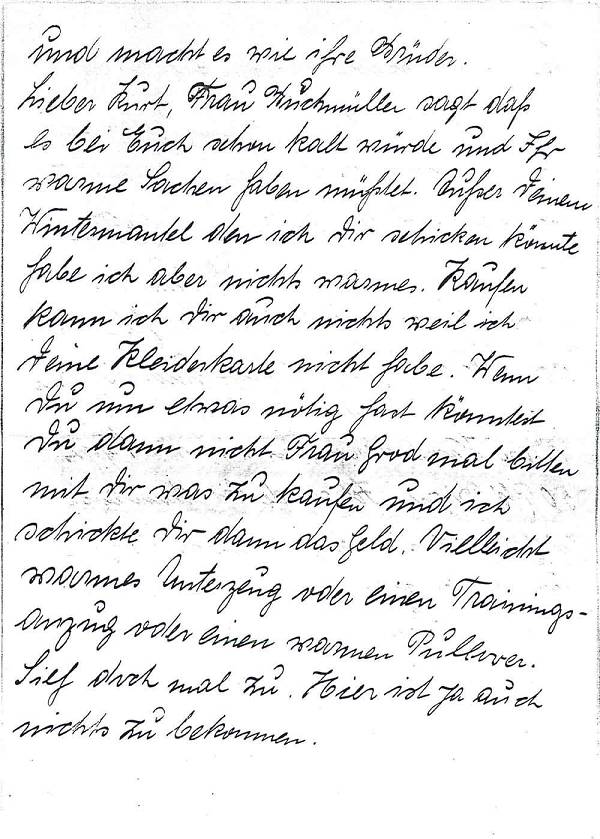 und macht es wie ihre Brüder.
Lieber Kurt, Frau Buchmüller sagt daß
es bei Euch schon kalt würde und Ihr
warme Sachen haben müßtet. Außer Deinem
Wintermantel den ich Dir schicken könnte
habe ich aber nichts warmes. Kaufen
kann ich Dir auch nichts weil ich
Deine Kleiderkarte nicht habe. Wenn
Du nun etwas nötig hast könntest
Du dann nicht Frau Grod mal bitten
mit Dir was zu kaufen und ich
schickte Dir dann das Geld. Vielleicht
warmes Unterzeug oder einen Trainings-
anzug oder einen warmen Pullover.
Sieh doch mal zu. Hier ist ja auch
nichts zu bekommen.